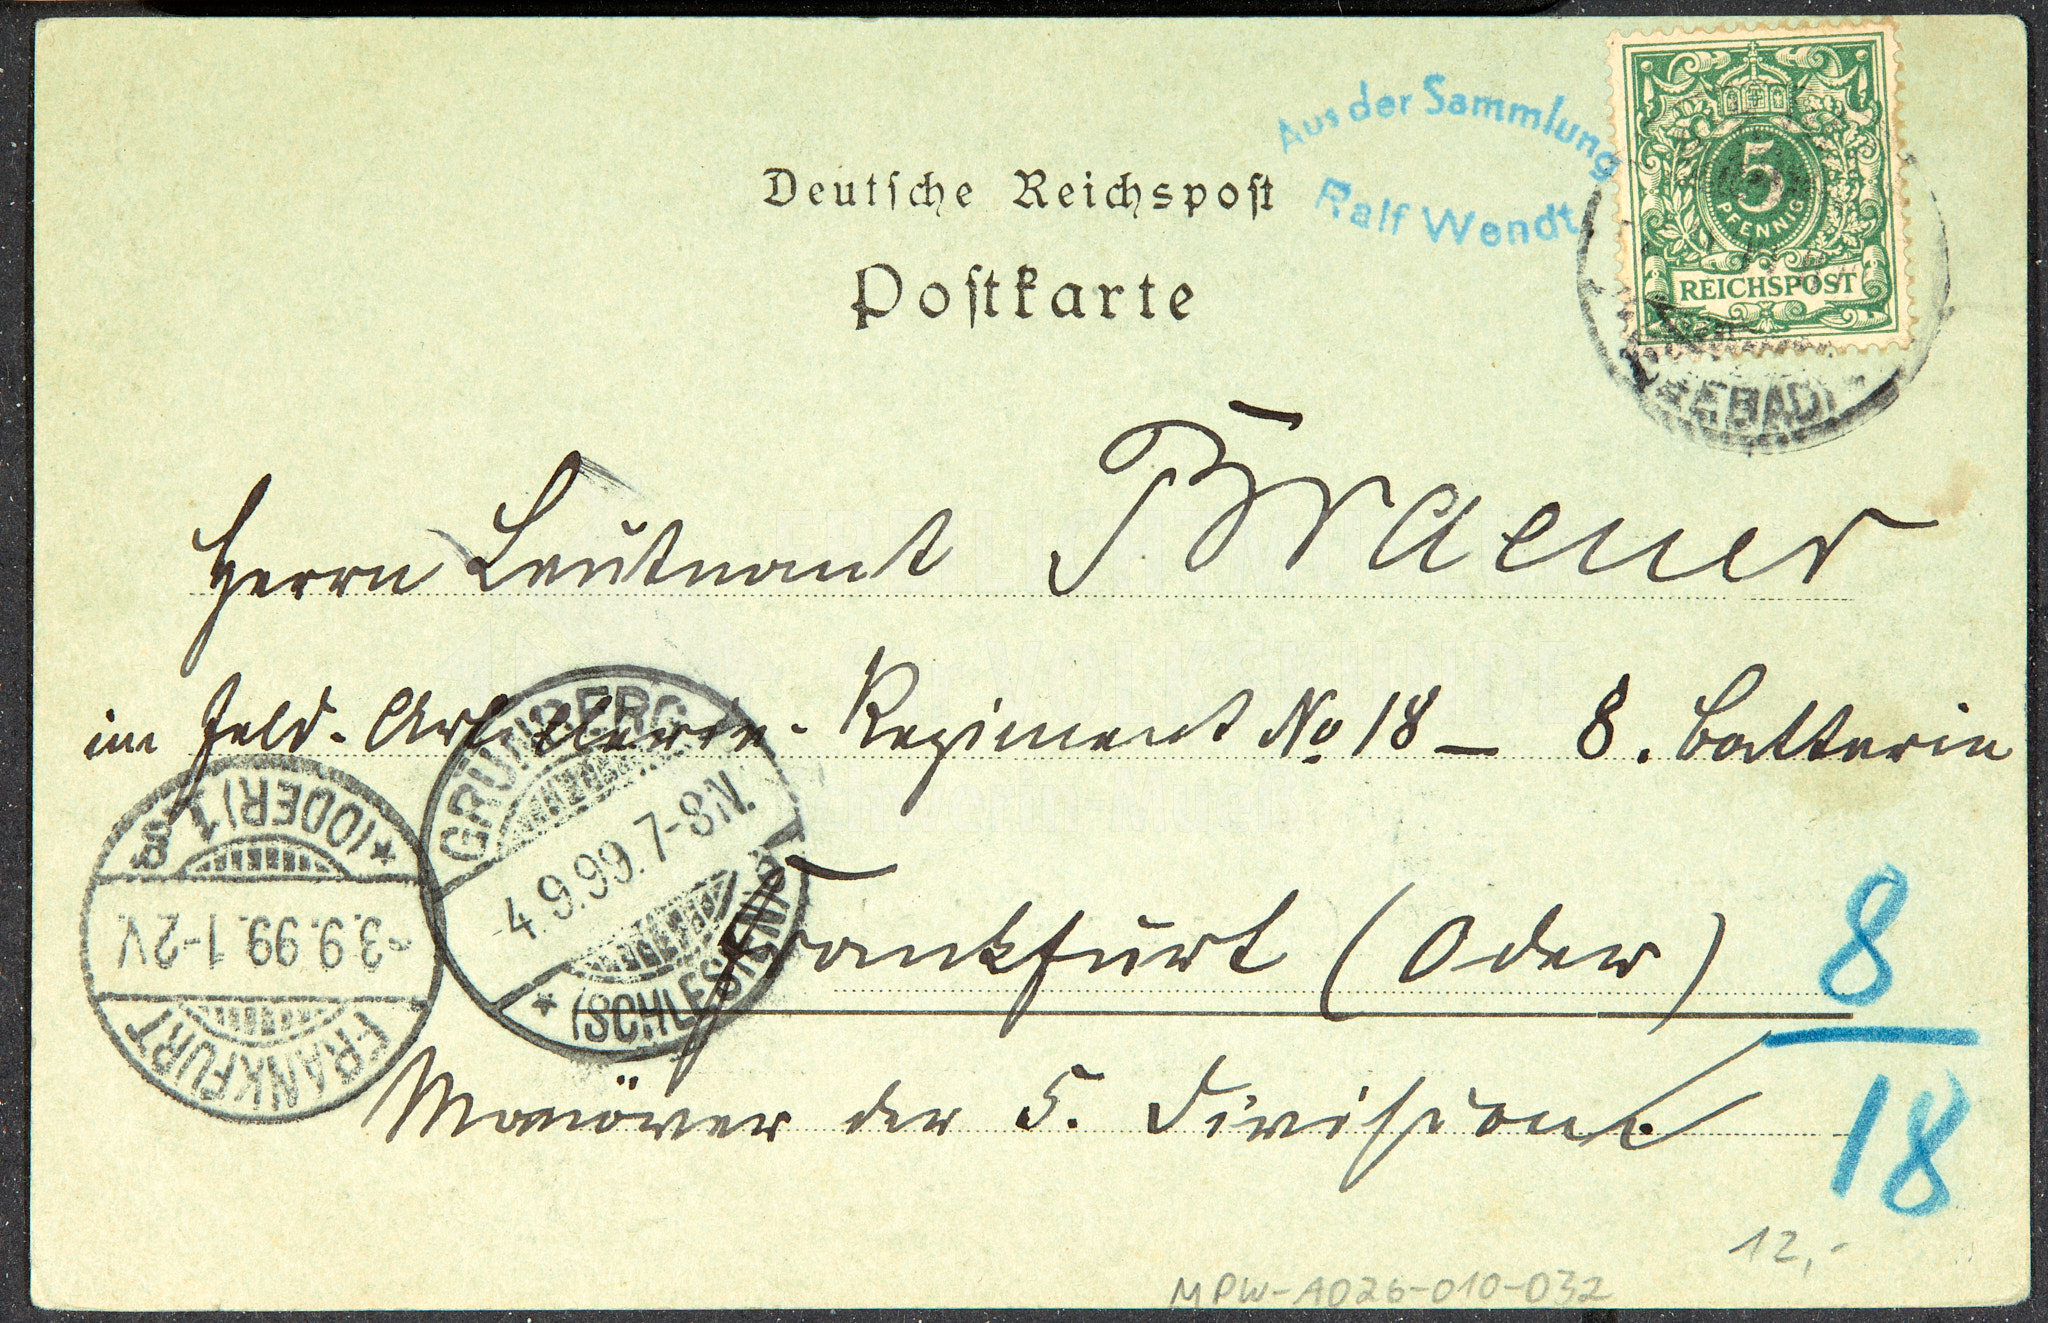 Aus der Sammlung
Ralf Wendt
5
PFENNIG
REICHSPOST
Deutsche Reichspost
Postkarte
SEEBAD
Herrn Leutnant Braeuer
im Feld-Artillerie-Regiment No 18 – 8. Batterie
Frankfurt (Oder)
Manöver der 5. Division.
GRÜNBERG
4.9.99. 7-8N.
(SCHLESIEN)
FRANKFURT
3.9.99. 1-2V.
(ODER) 1
8
18
12,-
MPW-A026-010-032